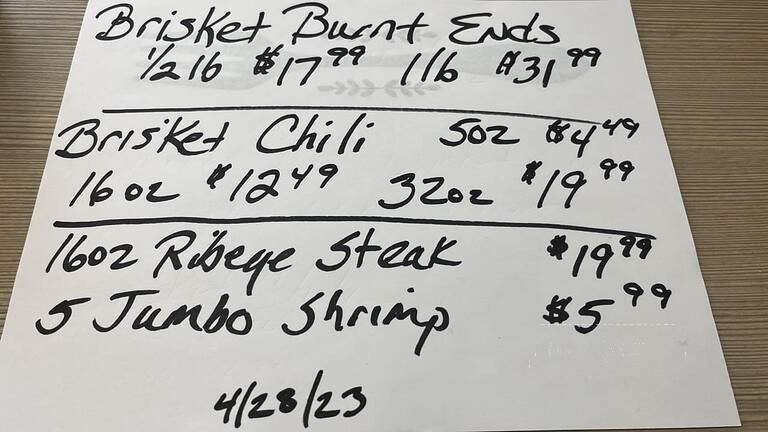 Brisket Burnt Ends
1/2 lb $17.99 1 lb $31.99
Brisket Chili 5oz $4.49
16oz $12.49 32oz $19.99
16oz Ribeye Steak $19.99
5 Jumbo Shrimp $5.99
4/28/23